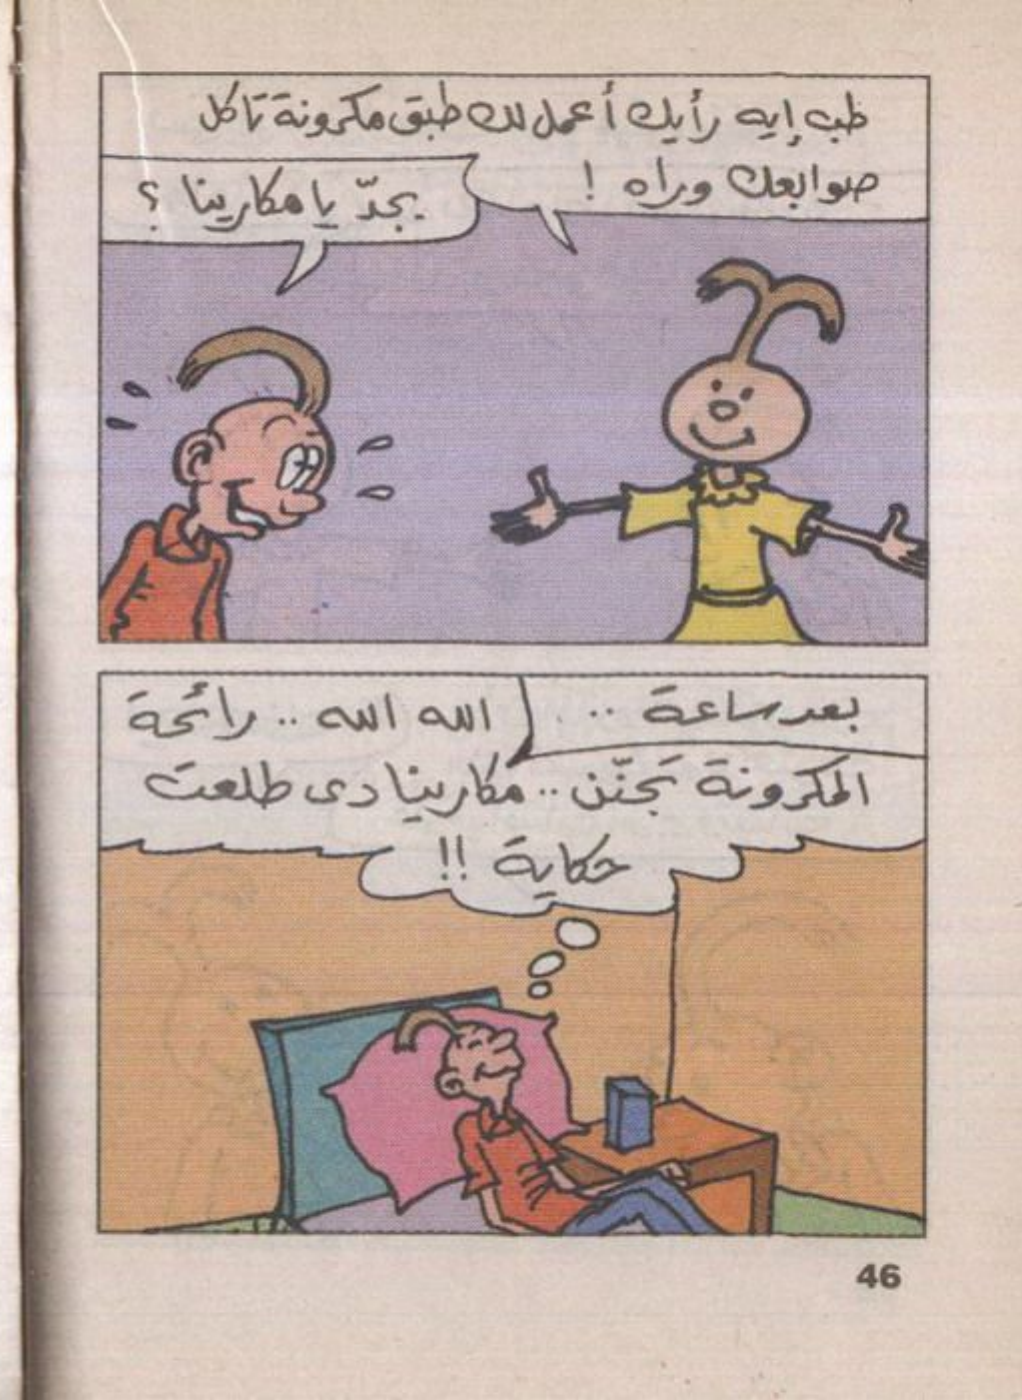 طب إيه رأيك أعمل لك طبق مكرونة تاكل
صوابعك وراه !
بجدّ يا مكارينا ؟
بعد ساعة ..
الله الله .. رائحة
المكرونة تجنّن .. مكارينا دى طلعت
حكاية !!
46